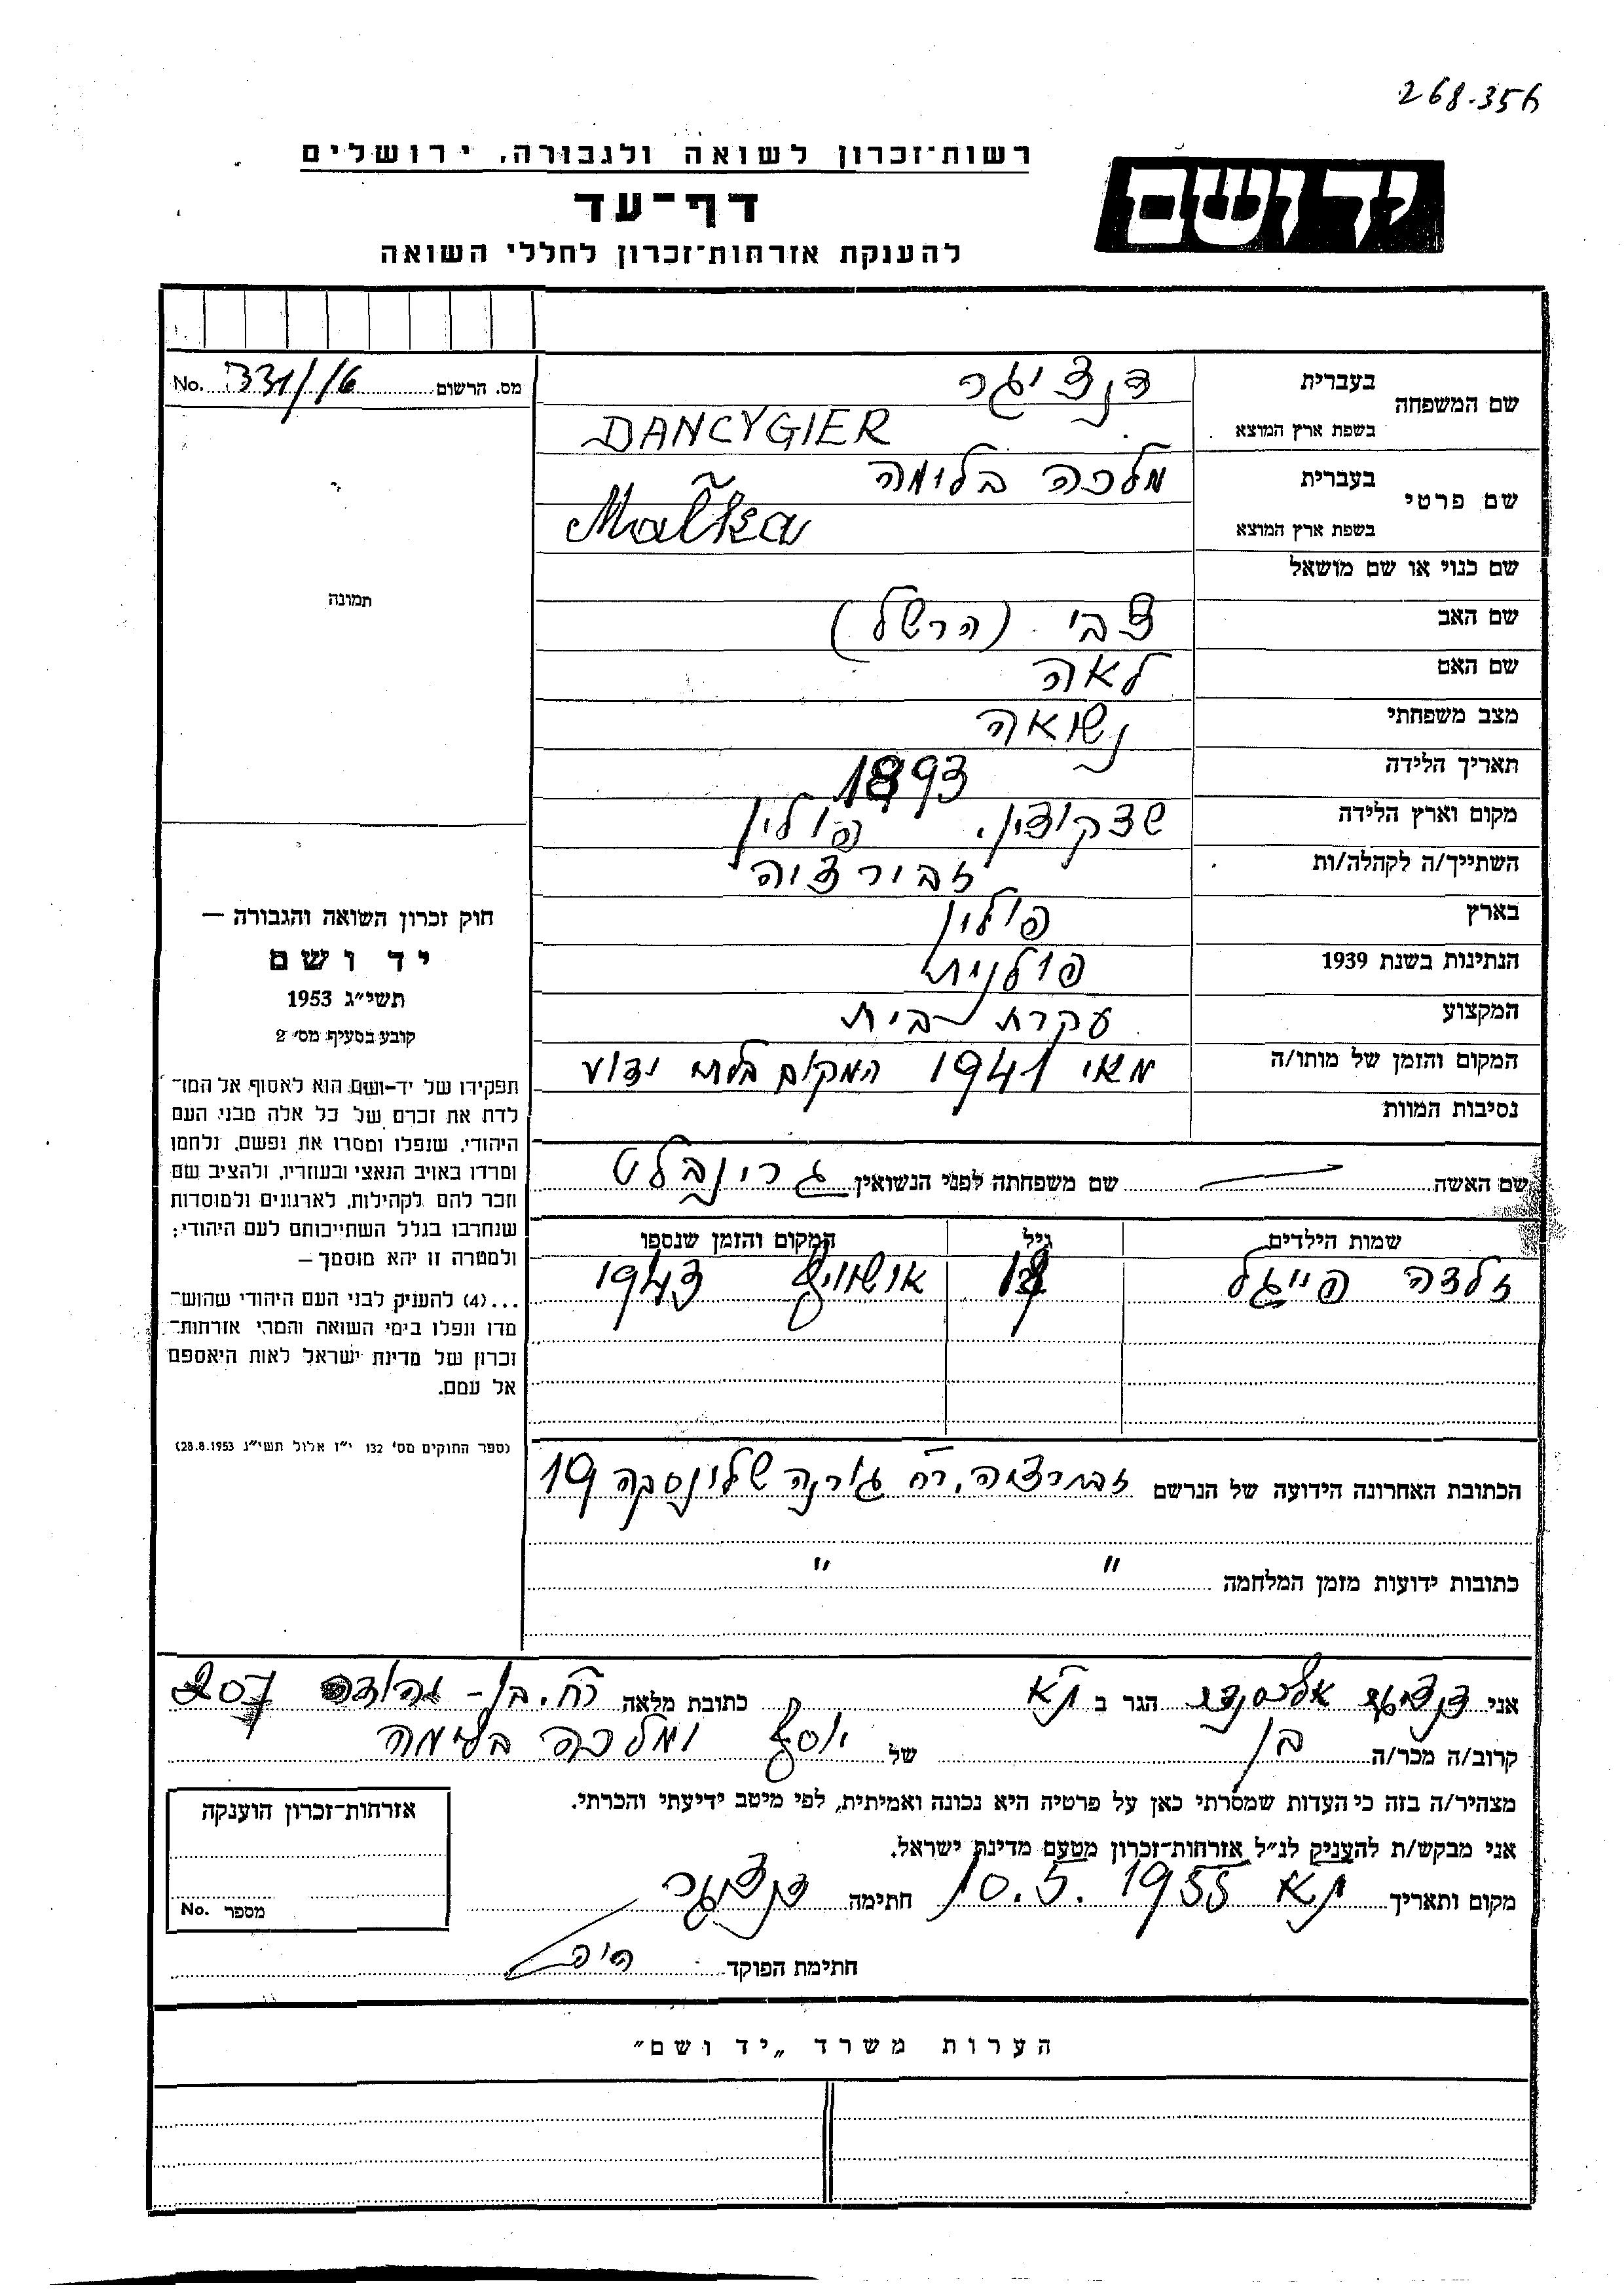 268.356
רשות־זכרון לשואה ולגבורה, ירושלים
יד ושם
דף־עד
להענקת אזרחות־זכרון לחללי השואה
מס. הרשום 331/16 No.
שם המשפחה בעברית דנציגר
בשפת ארץ המוצא DANCYGIER
שם פרטי בעברית מלכה בלימה
בשפת ארץ המוצא Malka
שם כנוי או שם מושאל
שם האב צבי (הרשל)
שם האם לאה
מצב משפחתי נשואה
תאריך הלידה 1893
מקום וארץ הלידה שצקוצין, פולין
השתייך/ה לקהלה/ות זבירצ'ה
בארץ פולין
הנתינות בשנת 1939 פולנית
המקצוע עקרת בית
המקום והזמן של מותו/ה מאי 1941 המקום בלתי ידוע
נסיבות המוות
תמונה
חוק זכרון השואה והגבורה —
יד ושם
תשי״ג 1953
קובע בסעיף מס׳ 2
תפקידו של יד-ושם הוא לאסוף אל המו־
לדת את זכרם של כל אלה מבני העם
היהודי, שנפלו ומסרו את נפשם, נלחמו
ומרדו באויב הנאצי ובעוזריו, ולהציב שם
וזכר להם לקהילות, לארגונים ולמוסדות
שנחרבו בגלל השתייכותם לעם היהודי;
ולמטרה זו יהא מוסמך —
...(4) להעניק לבני העם היהודי שהוש־
מדו ונפלו בימי השואה והמרי אזרחות־
זכרון של מדינת ישראל לאות היאספם
אל עמם.
(ספר החוקים מס׳ 132 י״ז אלול תשי״ג 28.8.1953)
שם האשה — שם משפחתה לפני הנשואין גרינבלט
שמות הילדים גיל המקום והזמן שנספו
זלדה פייגל אושוויץ 1943
הכתובת האחרונה הידועה של הנרשם זבירצה, רח׳ גורנה שלונסקה 19
כתובות ידועות מזמן המלחמה " "
אני דנציגר אלכסנדר הגר ב ת״א כתובת מלאה רח. בן-יהודה 207
קרוב/ה מכר/ה בן של יוסף ומלכה בלימה
מצהיר/ה בזה כי העדות שמסרתי כאן על פרטיה היא נכונה ואמיתית, לפי מיטב ידיעתי והכרתי.
אני מבקש/ת להעניק לנ״ל אזרחות־זכרון מטעם מדינת ישראל.
מקום ותאריך ת״א 10.5.1955 חתימה דנציגר
חתימת הפוקד
אזרחות־זכרון הוענקה
מספר No.
הערות משרד „יד ושם״